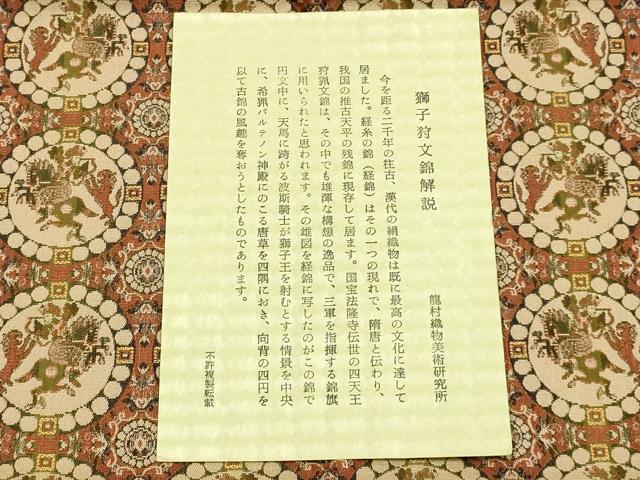 獅子狩文錦解説
龍村織物美術研究所
今を距る二千年の往古、漢代の絹織物は既に最高の文化に達して
居ました。経糸の錦(経錦)はその一つの現れで、隋唐と伝わり、
我国の推古天平の残錦に現存して居ます。国宝法隆寺伝世の四天王
狩猟文錦は、その中でも雄渾な構想の逸品で、三軍を指揮する錦旗
に用いられたと思われます。その雄図を経錦に写したのがこの錦で
円文中に、天馬に跨がる波斯騎士が獅子王を射むとする情景を中央
に、希猟パルテノン神殿にのこる唐草を四隅におき、向背の四円を
以て古錦の風趣を奪おうとしたものであります。
不許複製転載